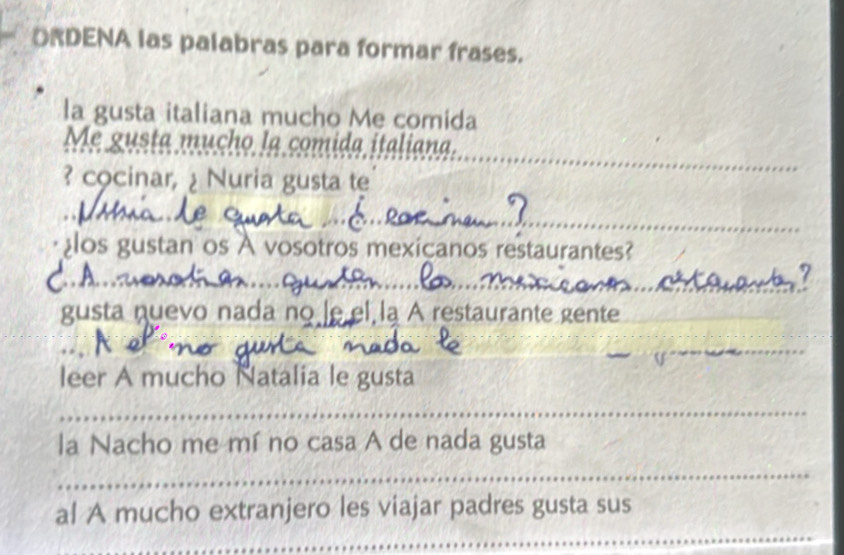 ORDENA las palabras para formar frases.
la gusta italiana mucho Me comida
Me gusta mucho la comida italiana.
? cocinar, ¿ Nuria gusta te
Nuria le gusta ¿ cocinar ?
¿los gustan os A vosotros mexicanos restaurantes?
¿ A vosotros gustan los mexicanos restaurantes?
gusta nuevo nada no le el la A restaurante gente
A el no gusta nada le
leer A mucho Natalia le gusta
la Nacho me mí no casa A de nada gusta
al A mucho extranjero les viajar padres gusta sus